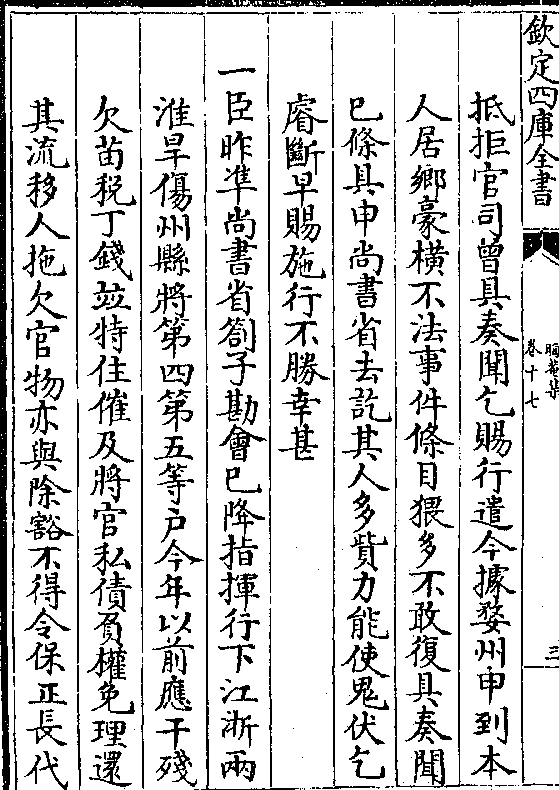 欽定四庫全書
晦菴集
卷十七
三
抵拒官司曾具奏聞乞賜行遣今據婺州申到本
人居鄉豪橫不法事件條目猥多不敢復具奏聞
已條具申尚書省去訖其人多貲力能使鬼伏乞
睿斷早賜施行不勝幸甚
一臣昨準尚書省劄子勘會已降指揮行下江浙兩
淮旱傷州縣將第四第五等戶今年以前應干殘
欠苗稅丁錢竝特住催及將官私債負權免理還
其流移人拖欠官物亦與除豁不得令保正長代